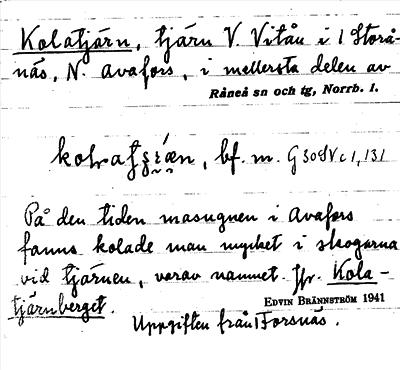 Kolatjärn, tjärn V. Vitån i 1 Storå-
näs, N. Avafors, i mellersta delen av
Råneå sn och tg, Norrb. l.
bf. m. G 30dV c 1, 131
På den tiden masugnen i Avafors
fanns kolade man mycket i skogarna
vid tjärnen, varav namnet. Jfr. Kola-
tjärnberget.
EDVIN BRÄNNSTRÖM 1941
Uppgiften från 1 Forsnäs.